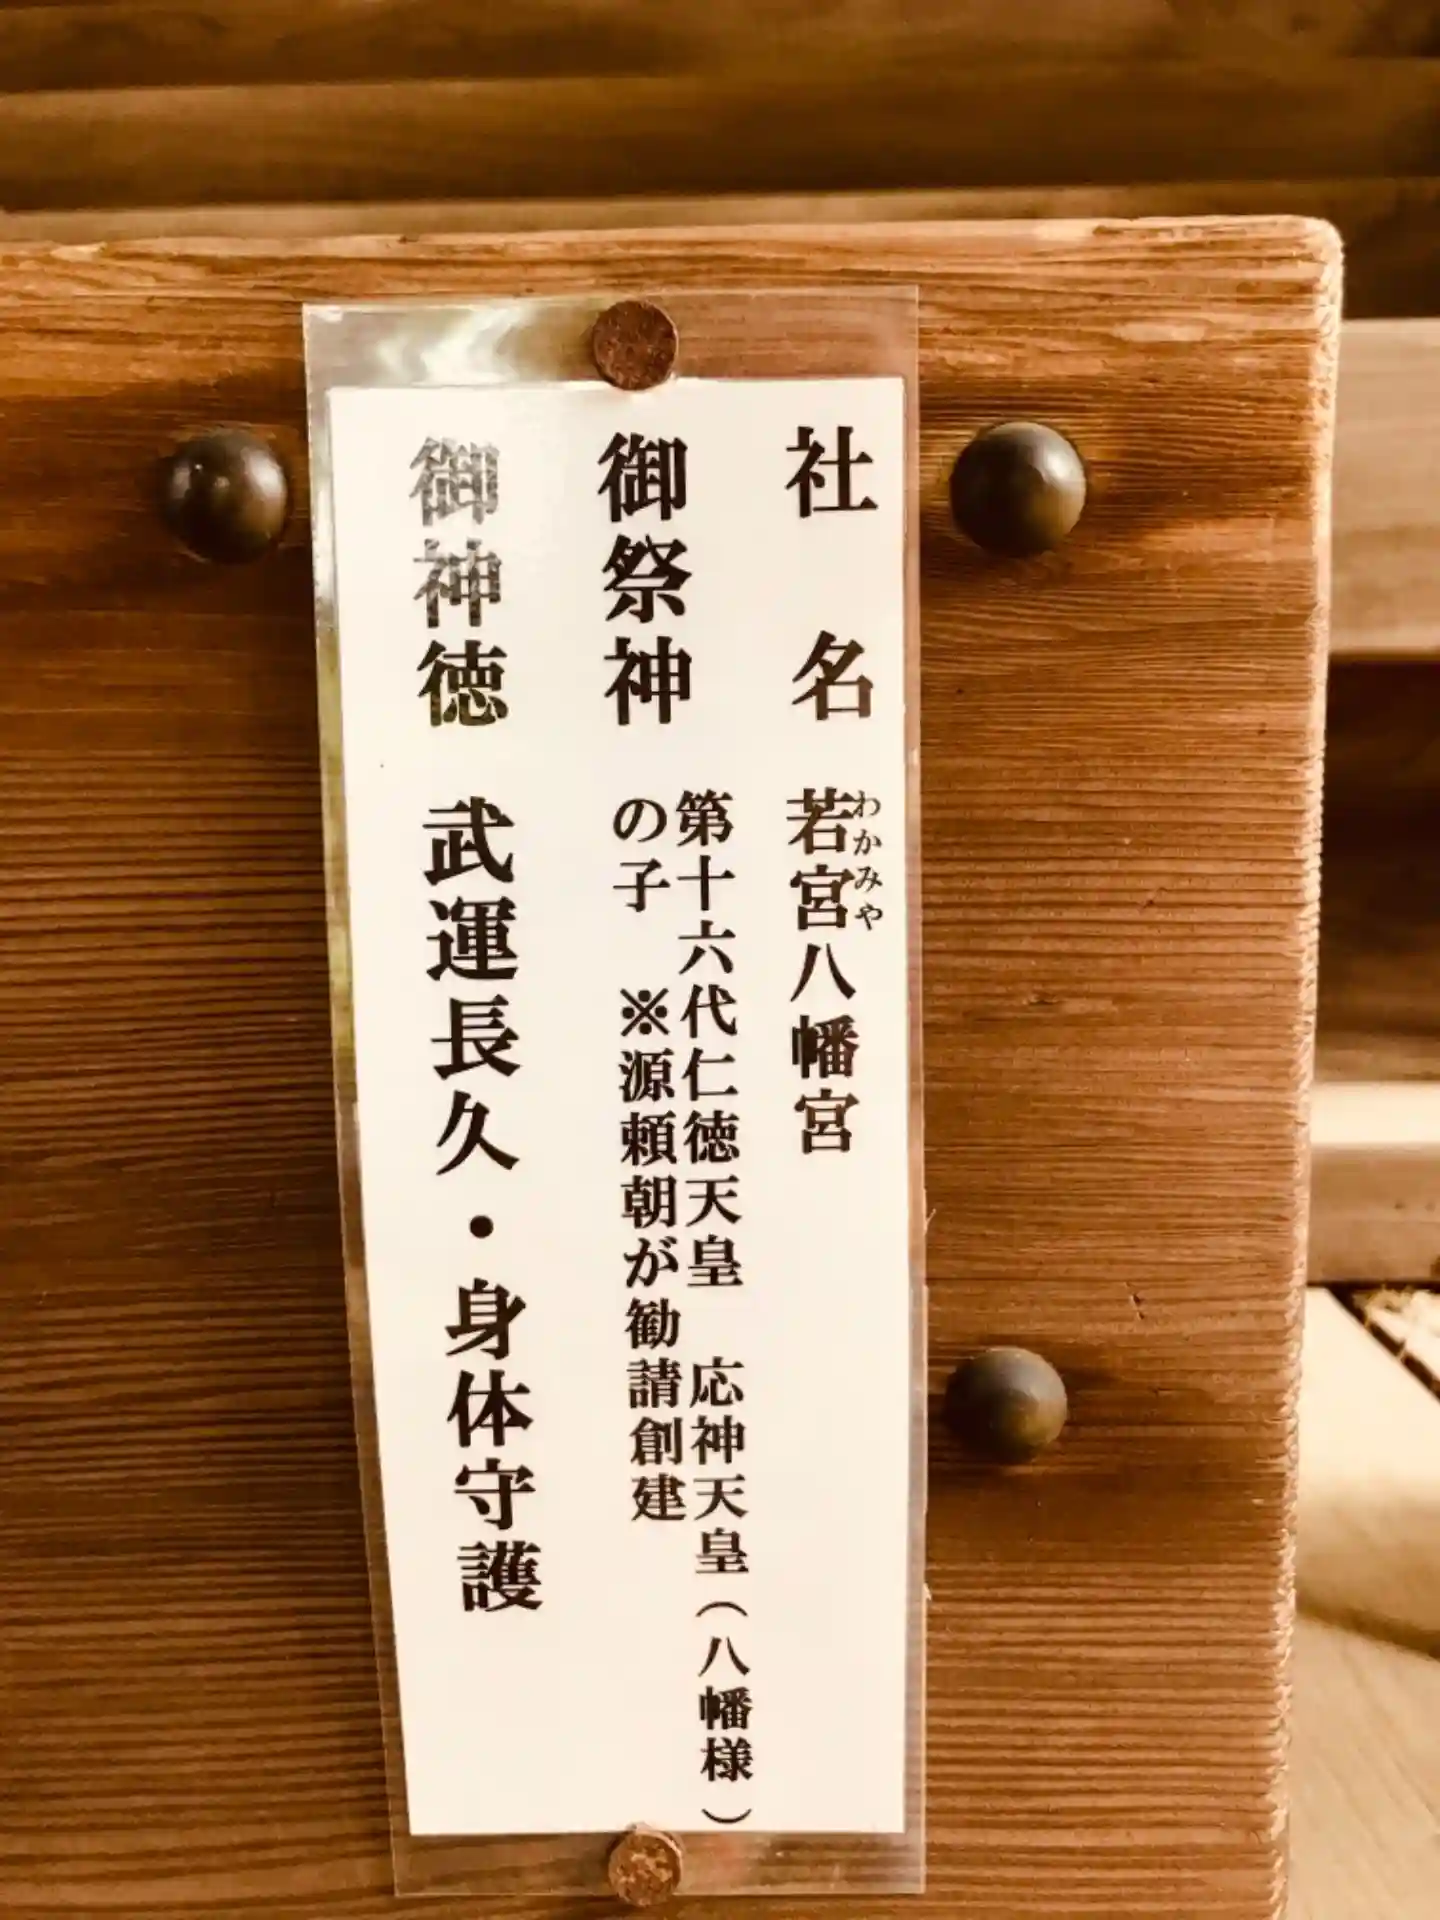 社名 若宮八幡宮
わかみや
御祭神 第十六代仁徳天皇 応神天皇(八幡様)
の子 ※源頼朝が勧請創建
御神徳 武運長久・身体守護